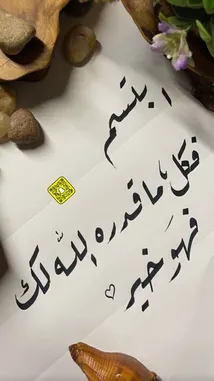 ابتسم
فكل ما قدره الله لك
فهو خير